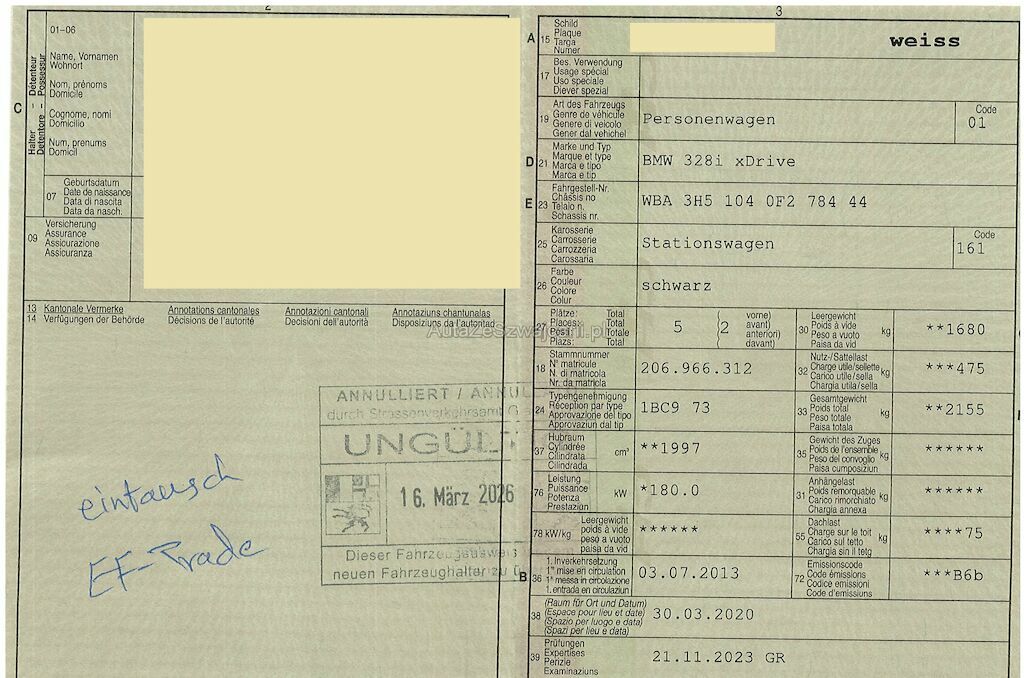 2
01-06
Halter - Détenteur
Detentore - Possessur
Name, Vornamen
Wohnort
Nom, prénoms
Domicile
C
Cognome, nomi
Domicilio
Num, prenums
Domicil
07
Geburtsdatum
Date de naissance
Data di nascita
Data da nasch.
09
Versicherung
Assurance
Assicurazione
Assicuranza
13 Kantonale Vermerke Annotations cantonales Annotazioni cantonali Annotaziuns chantunalas
14 Verfügungen der Behörde Décisions de l'autorité Decisioni dell'autorità Disposiziuns da l'autoritad
ANNULLIERT / ANNUL
durch Strassenverkehrsamt G
UNGÜL
16. März 2026
Dieser Fahrzeugausweis
neuen Fahrzeughalter zu
eintausch
EF-Trade
AutaZeSzwajcarii.pl
3
A 15
Schild
Plaque
Targa
Numer
weiss
17
Bes. Verwendung
Usage spécial
Uso speciale
Diever spezial
19
Art des Fahrzeugs
Genre de véhicule
Genere di veicolo
Gener dal vehichel
Personenwagen
Code
01
D 21
Marke und Typ
Marque et type
Marca e tipo
Marca e tip
BMW 328i xDrive
E 23
Fahrgestell-Nr.
Châssis no
Telaio n.
Schassis nr.
WBA 3H5 104 0F2 784 44
25
Karosserie
Carrosserie
Carrozzeria
Carossaria
Stationswagen
Code
161
26
Farbe
Couleur
Colore
Colur
schwarz
27
Plätze: Total
Places: Total
Posti: Totale
Plazs: Total
5
(2
vorne)
avant)
anteriori)
davant)
30
Leergewicht
Poids à vide
Peso a vuoto
Paisa da vid
kg
**1680
18
Stammnummer
N° matricule
N. di matricola
Nr. da matricla
206.966.312
32
Nutz-/Sattellast
Charge utile/sellette
Carico utile/sella
Chargia utila/sella
kg
***475
24
Typengenehmigung
Réception par type
Approvazione del tipo
Approvaziun dal tip
1BC9 73
33
Gesamtgewicht
Poids total
Peso totale
Paisa totala
kg
**2155
37
Hubraum
Cylindrée
Cilindrata
Cilindrada
cm³
**1997
35
Gewicht des Zuges
Poids de l'ensemble
Peso del convoglio
Paisa cumposiziun
kg
******
76
Leistung
Puissance
Potenza
Prestaziun
kW
*180.0
31
Anhängelast
Poids remorquable
Carico rimorchiato
Chargia annexa
kg
******
78 kW/kg
Leergewicht
poids à vide
peso a vuoto
paisa da vid
******
55
Dachlast
Charge sur le toit
Carico sul tetto
Chargia sin il tetg
kg
****75
B 36
1. Inverkehrsetzung
1re mise en circulation
1a messa in circolazione
1. entrada en circulaziun
03.07.2013
72
Emissionscode
Code émissions
Codice emissioni
Code d'emissiuns
***B6b
38
(Raum für Ort und Datum)
(Espace pour lieu et date)
(Spazio per luogo e data)
(Spazi per lieu e data)
30.03.2020
39
Prüfungen
Expertises
Perizie
Examinaziuns
21.11.2023 GR